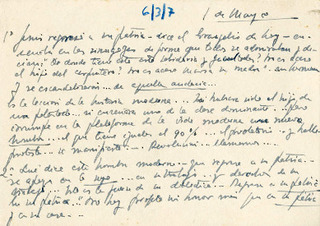 6/3/7
1 de Mayo
1º Jesús regresó a su patria - dice el Evangelio de hoy - en-
señaba en las sinagogas de forma que todos se admiraban y de-
cían: De donde tiene este tal sabiduría y facultades? No es acaso
el hijo del carpintero? No es acaso María su madre? sus hermanos
Y se escandalizaban... de
es la lección de la historia moderna... hubiera sido el hijo de
un potentado... si encarna una de clase dominante... pero
irrumpe en la plataforma de la vida moderna una nueva
el que tiene quizás el 90%... el proletario - y habla
protesta... se manifiesta... Revolución... llamamos...
2º Qué dice este hombre moderno - que regresa a su patria -
se apoya en lo suyo... en su trabajo... y derechos de su
trabajo. Esta es la fuerza de su dialéctica. Regresa a su patria
No hay profeta sin honor más que en su patria
y en su casa...